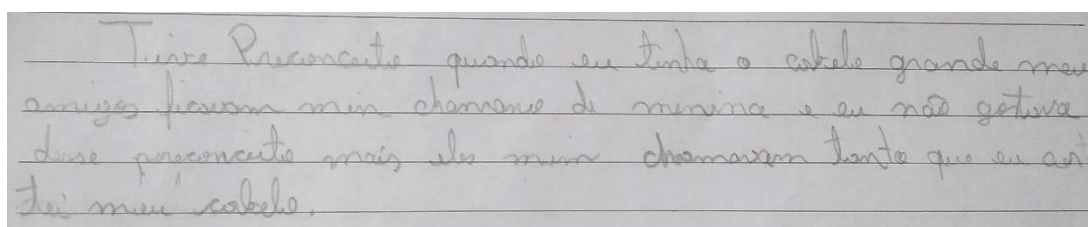 Tive Preconceito quando eu tinha o cabelo grande meu
amigos ficavam mim chamano de menina e eu não gotava
desse preconceito mais eles mim chamavam tanto que eu cor
tei meu cabelo.